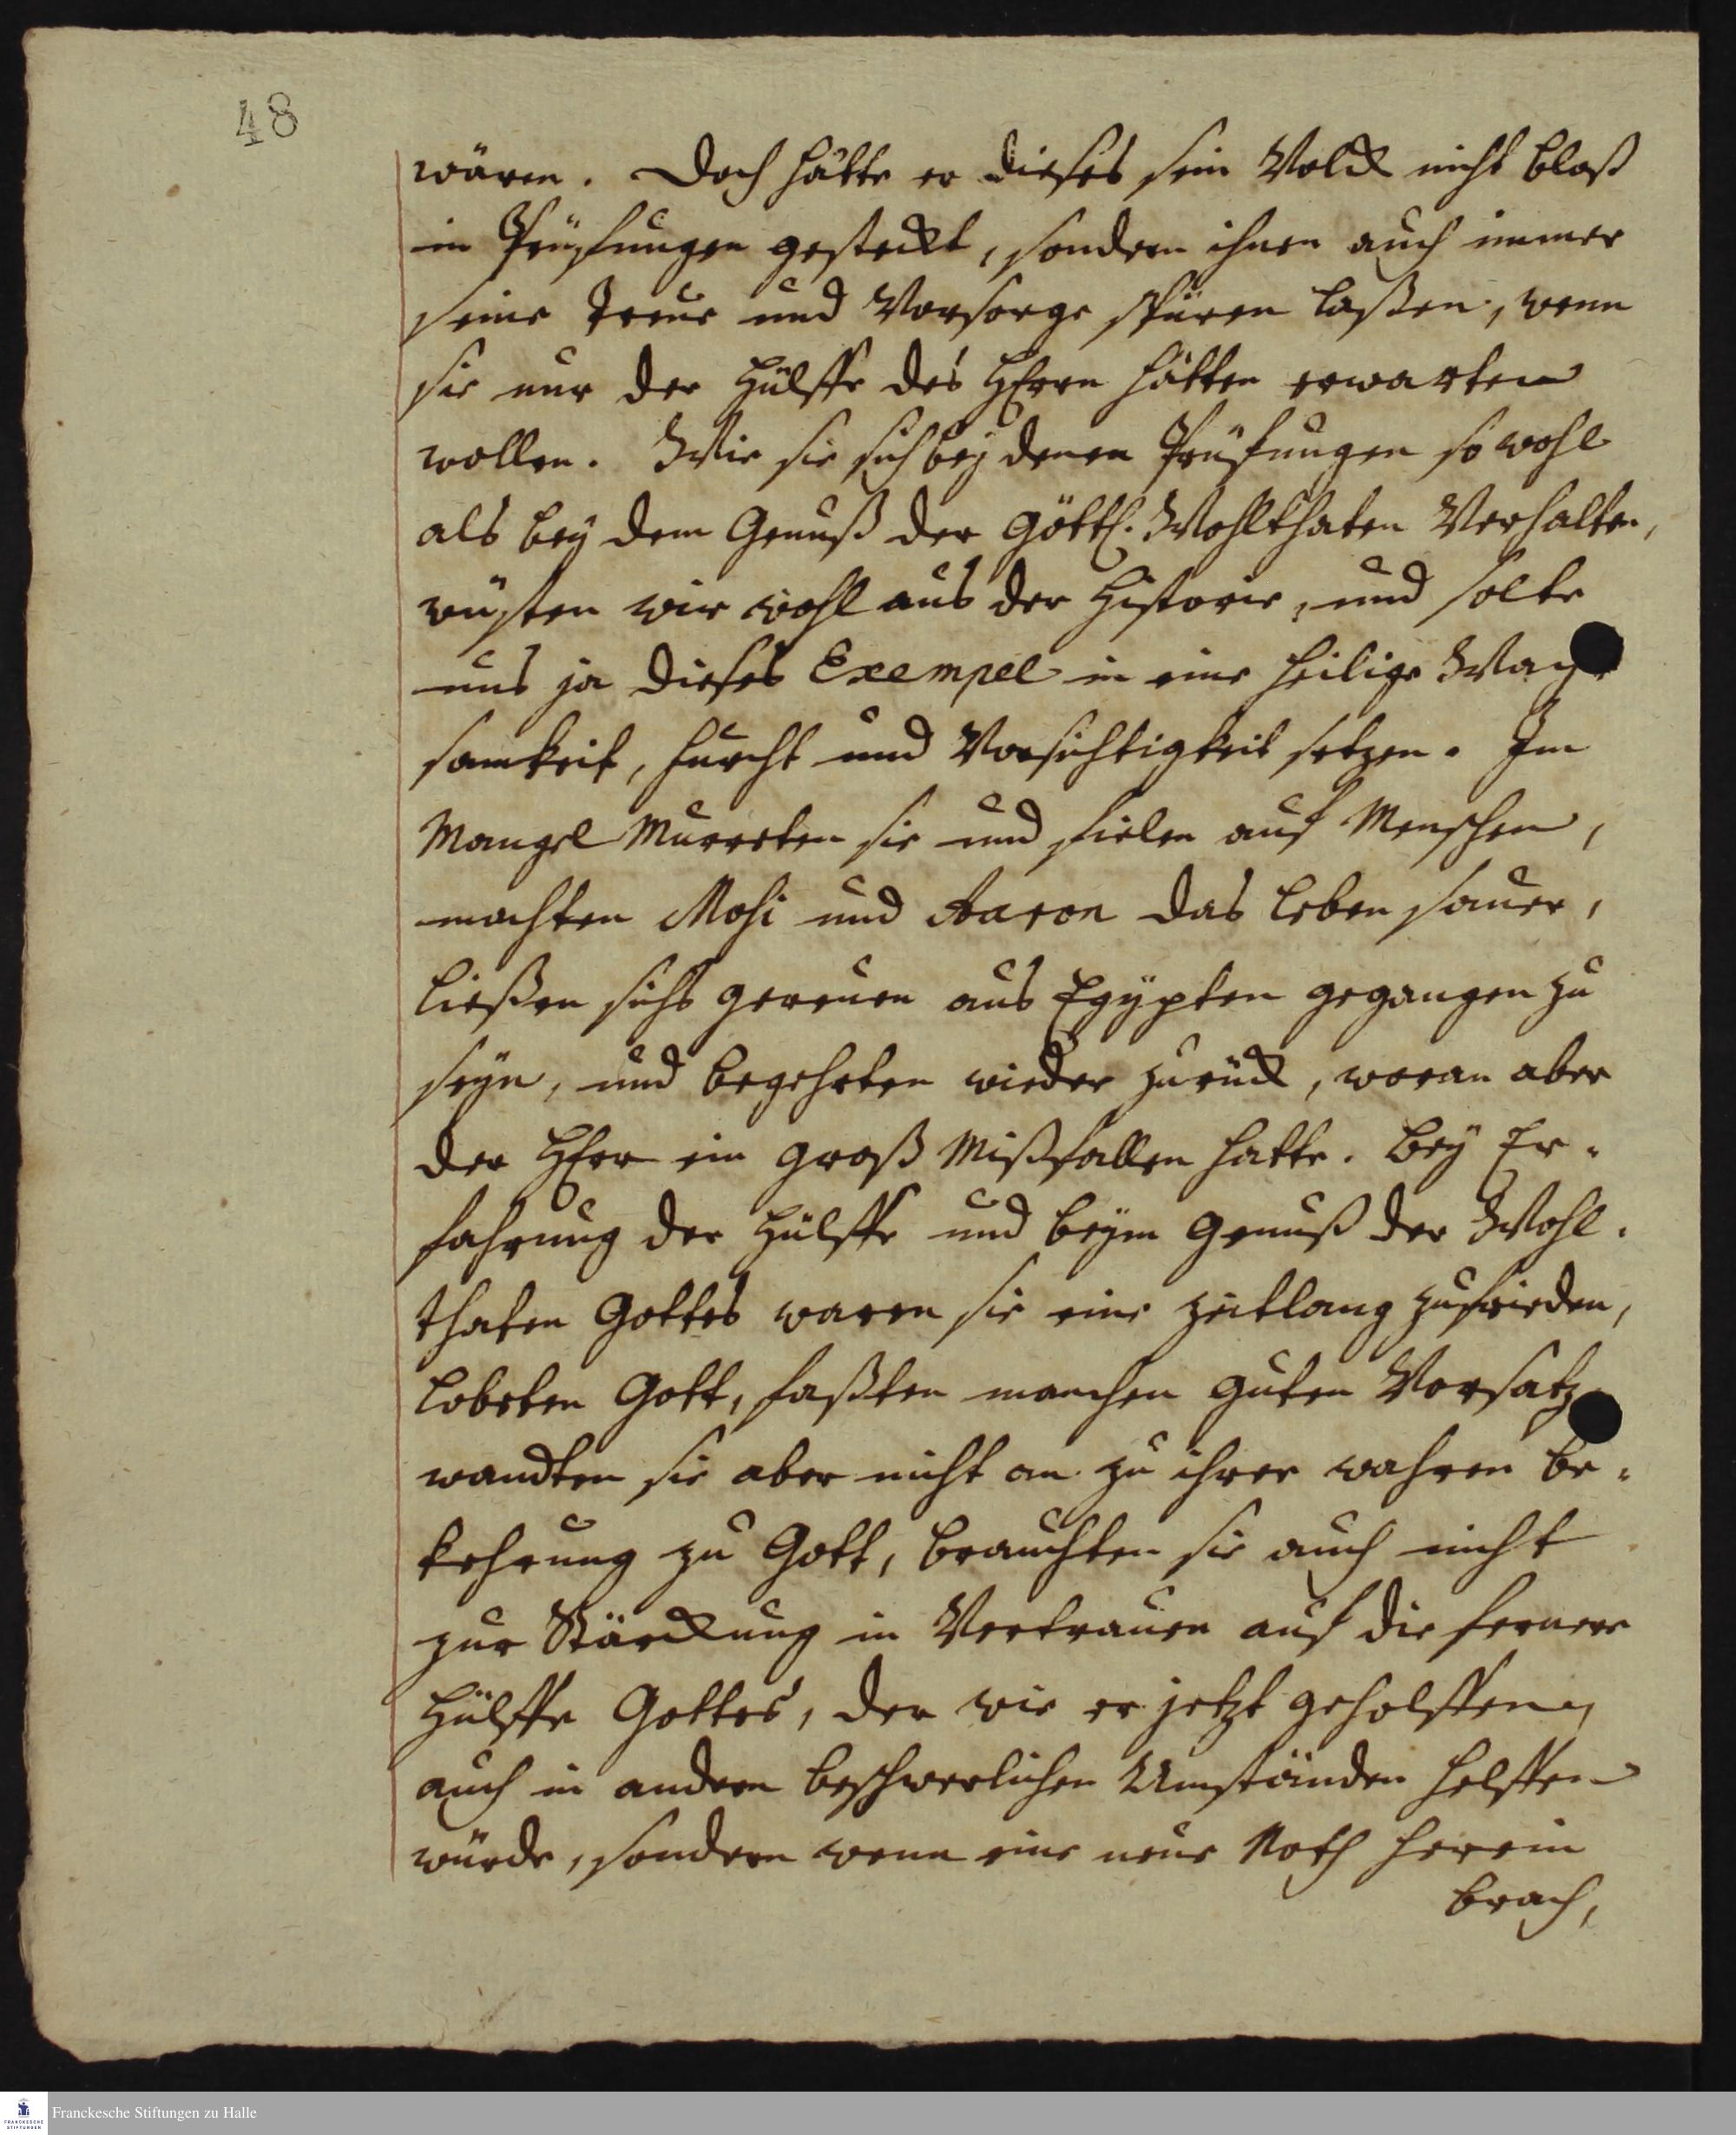 48
wären. Doch hätte er dieses sein Volck nicht bloß
in Prüfungen gesteckt, sondern ihnen auch immer
seine Treue und Vorsorge spüren laßen, wenn
sie nur der Hülffe des HErrn hätten erwarten
wollen. Wie sie sich bey denen Prüfungen so wohl
als bey dem Genuß der Göttl. Wohlthaten Verhalten,
wüsten wir wohl aus der Historie, und solte
uns ja dieses Exempel in eine heilige
samkeit, Furcht und Vorsichtigkeit setzen. Im
Mangel Murreten sie und fielen auf Menschen,
machten Mosi und Aaron das Leben sauer,
ließen sichs gereuen aus Egÿpten gegangen zu
seyn, und begehrten wieder zurück, woran aber
der HErr ein groß Mißfallen hatte. Bey Er-
fahrung der Hülffe und beÿm Genuß der Wohl-
thaten Gottes waren sie eine zeitlang zufrieden,
lobeten Gott, faßten manchen guten Vorsatz
wandten sie aber nicht an zu ihrer wahren Be-
kehrung zu Gott, brauchten sie auch nicht
zur Stärckung in Vertrauen auf die fernere
Hülffe Gottes, der wie er jetzt geholffen,
auch in andern beschwerlichen Umständen helffen
würde, sondern wenn eine neue Noth herein
brach,
FRANCKESCHE STIFTUNGEN
Franckesche Stiftungen zu Halle